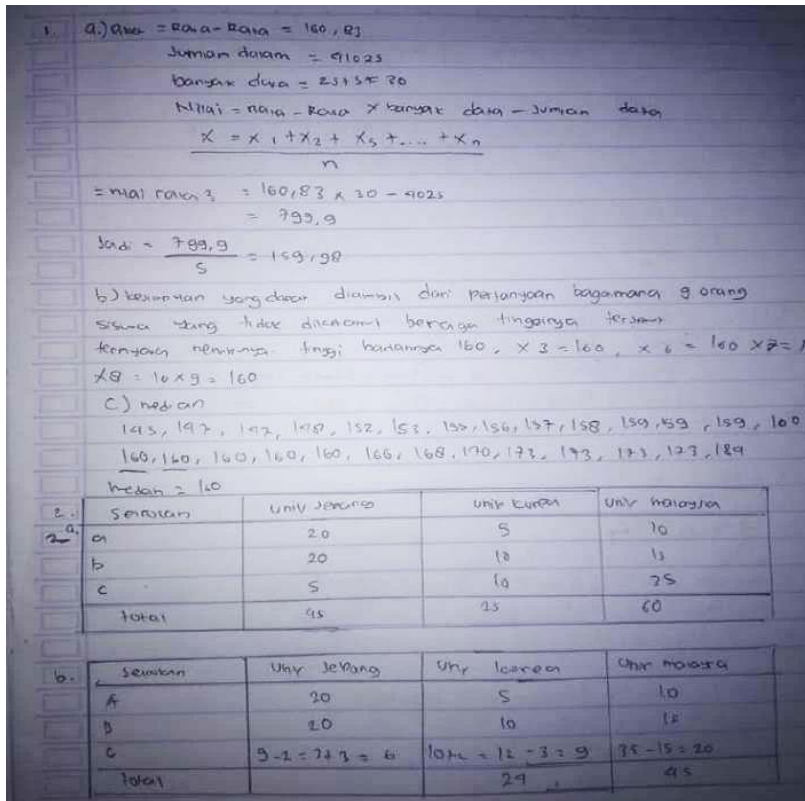 1. a.) = Rata-Rata = 160,83
Jumlah dalam = 4025
banyak data = 25+5= 30
Nilai = rata-Rata x banyak data - Jumlah data
x = x1 +x2 + x3 +.... +xn
n
= nilai rata2 = 160,83 x 30 - 4025
= 799,9
Jadi = 799,9 = 159,98
5
b) yang dapat diambil dari pertanyaan bagaimana 9 orang
siswa yang tidak berapa tingginya
ternyata tinggi 160, x 3 = 160, x 6 = 160 x 7=
x8 = 16 x 9 = 160
c) median
145, 147, 147, 148, 152, 153, 155, 156, 157, 158, 159, 159, 159, 160
160, 160, 160, 160, 160, 166, 168, 170, 173, 173, 173, 173, 184
median = 160
2. Univ Jepang Univ Korea Univ malaysia
a. a 20 5 10
b 20 10 15
c 5 10 35
total 45 25 60
b. Univ Jepang Univ Korea Univ
A 20 5 10
B 20 10 15
C 9-2=7+3=6 = 12-3=9 35-15=20
Total 24 45